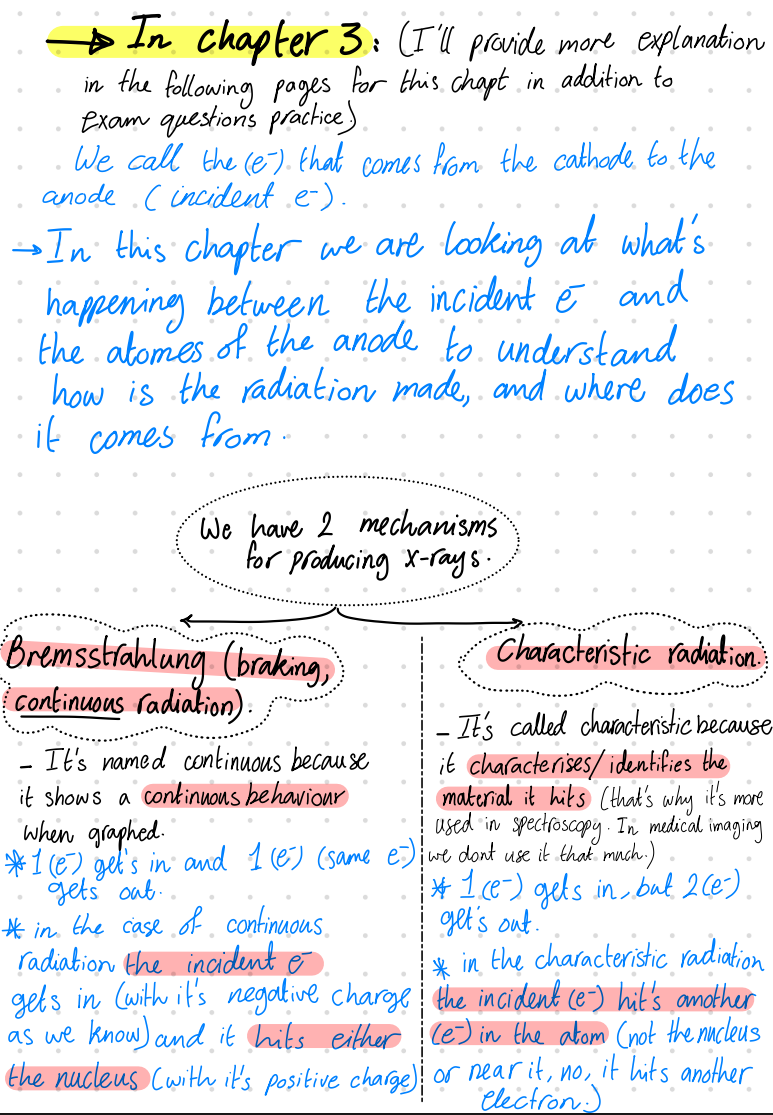 → In chapter 3: (I'll provide more explanation
in the following pages for this chapt in addition to
exam questions practice)
We call the (e⁻) that comes from the cathode to the
anode (incident e⁻).
→ In this chapter we are looking at what's
happening between the incident e⁻ and
the atomes of the anode to understand
how is the radiation made, and where does
it comes from.
We have 2 mechanisms
for producing x-rays.
Bremsstrahlung (braking,
continuous radiation).
- It's named continuous because
it shows a continuous behaviour
when graphed.
* 1(e⁻) get's in and 1(e⁻) (same e⁻)
gets out.
* in the case of continuous
radiation the incident e⁻
gets in (with it's negative charge
as we know) and it hits either
the nucleus (with it's positive charge)
Characteristic radiation.
- It's called characteristic because
it characterises/identifies the
material it hits (that's why it's more
used in spectroscopy. In medical imaging
we dont use it that much.)
* 1(e⁻) gets in, but 2(e⁻)
get's out.
* in the characteristic radiation
the incident (e⁻) hit's another
(e⁻) in the atom (not the nucleus
or near it, no, it hits another
electron.)